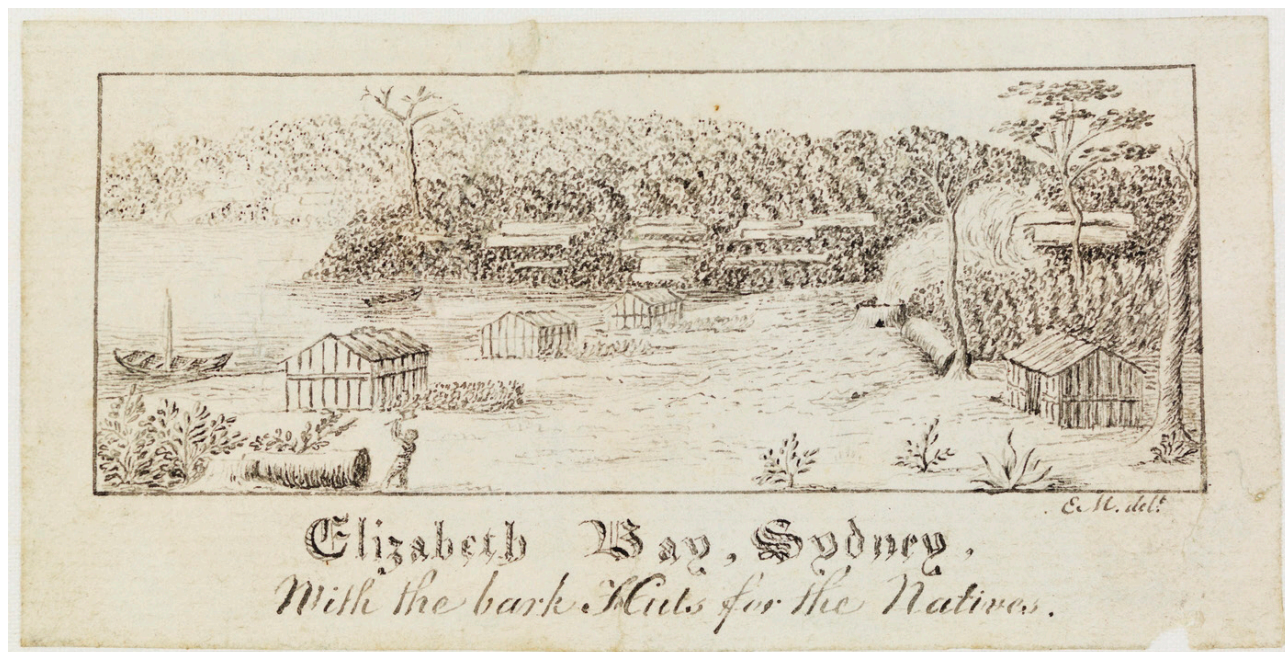 E.M. delt.
Elizabeth Bay, Sydney.
With the bark Huts for the Natives.